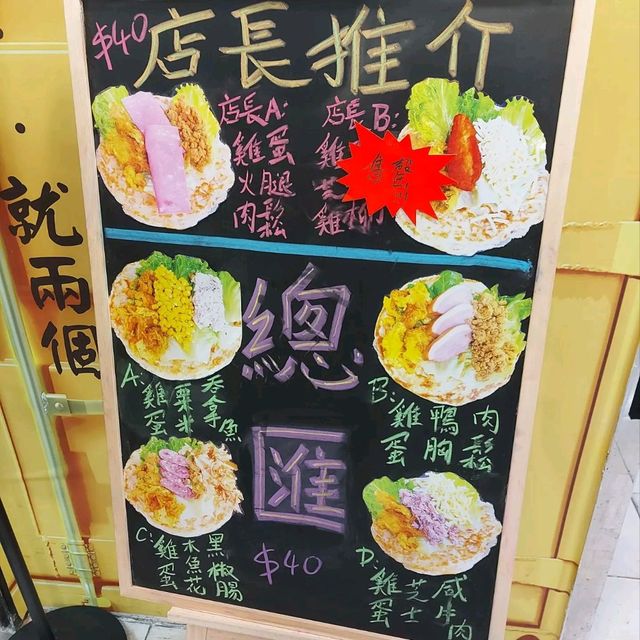 $40
店長推介
店長A:
雞蛋
火腿
肉鬆
店長B:
雞
芝
雞柳
總匯
$40
A:雞蛋
粟米
吞拿魚
B:雞蛋
鴨胸
肉鬆
C:雞蛋
木魚花
黑椒腸
D:雞蛋
芝士
咸牛肉
就兩個